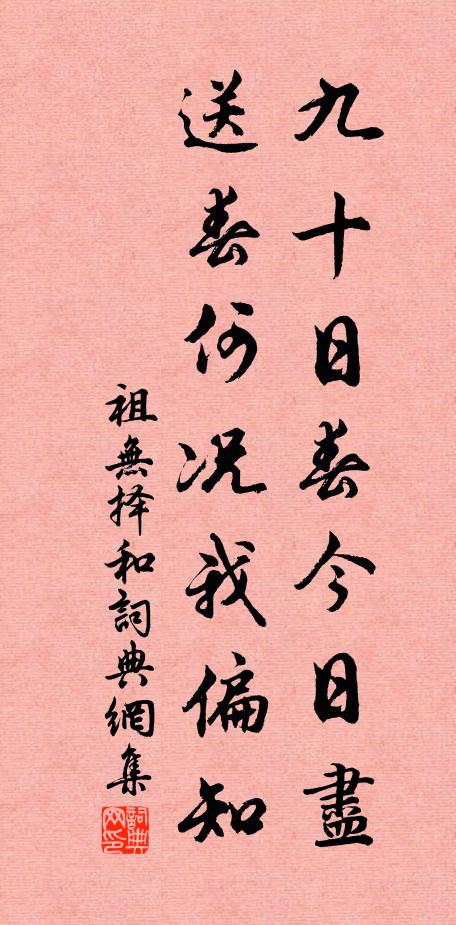 九十日春今日盡
送春何况我偏知
祖無择和詞典網集
詞典网印